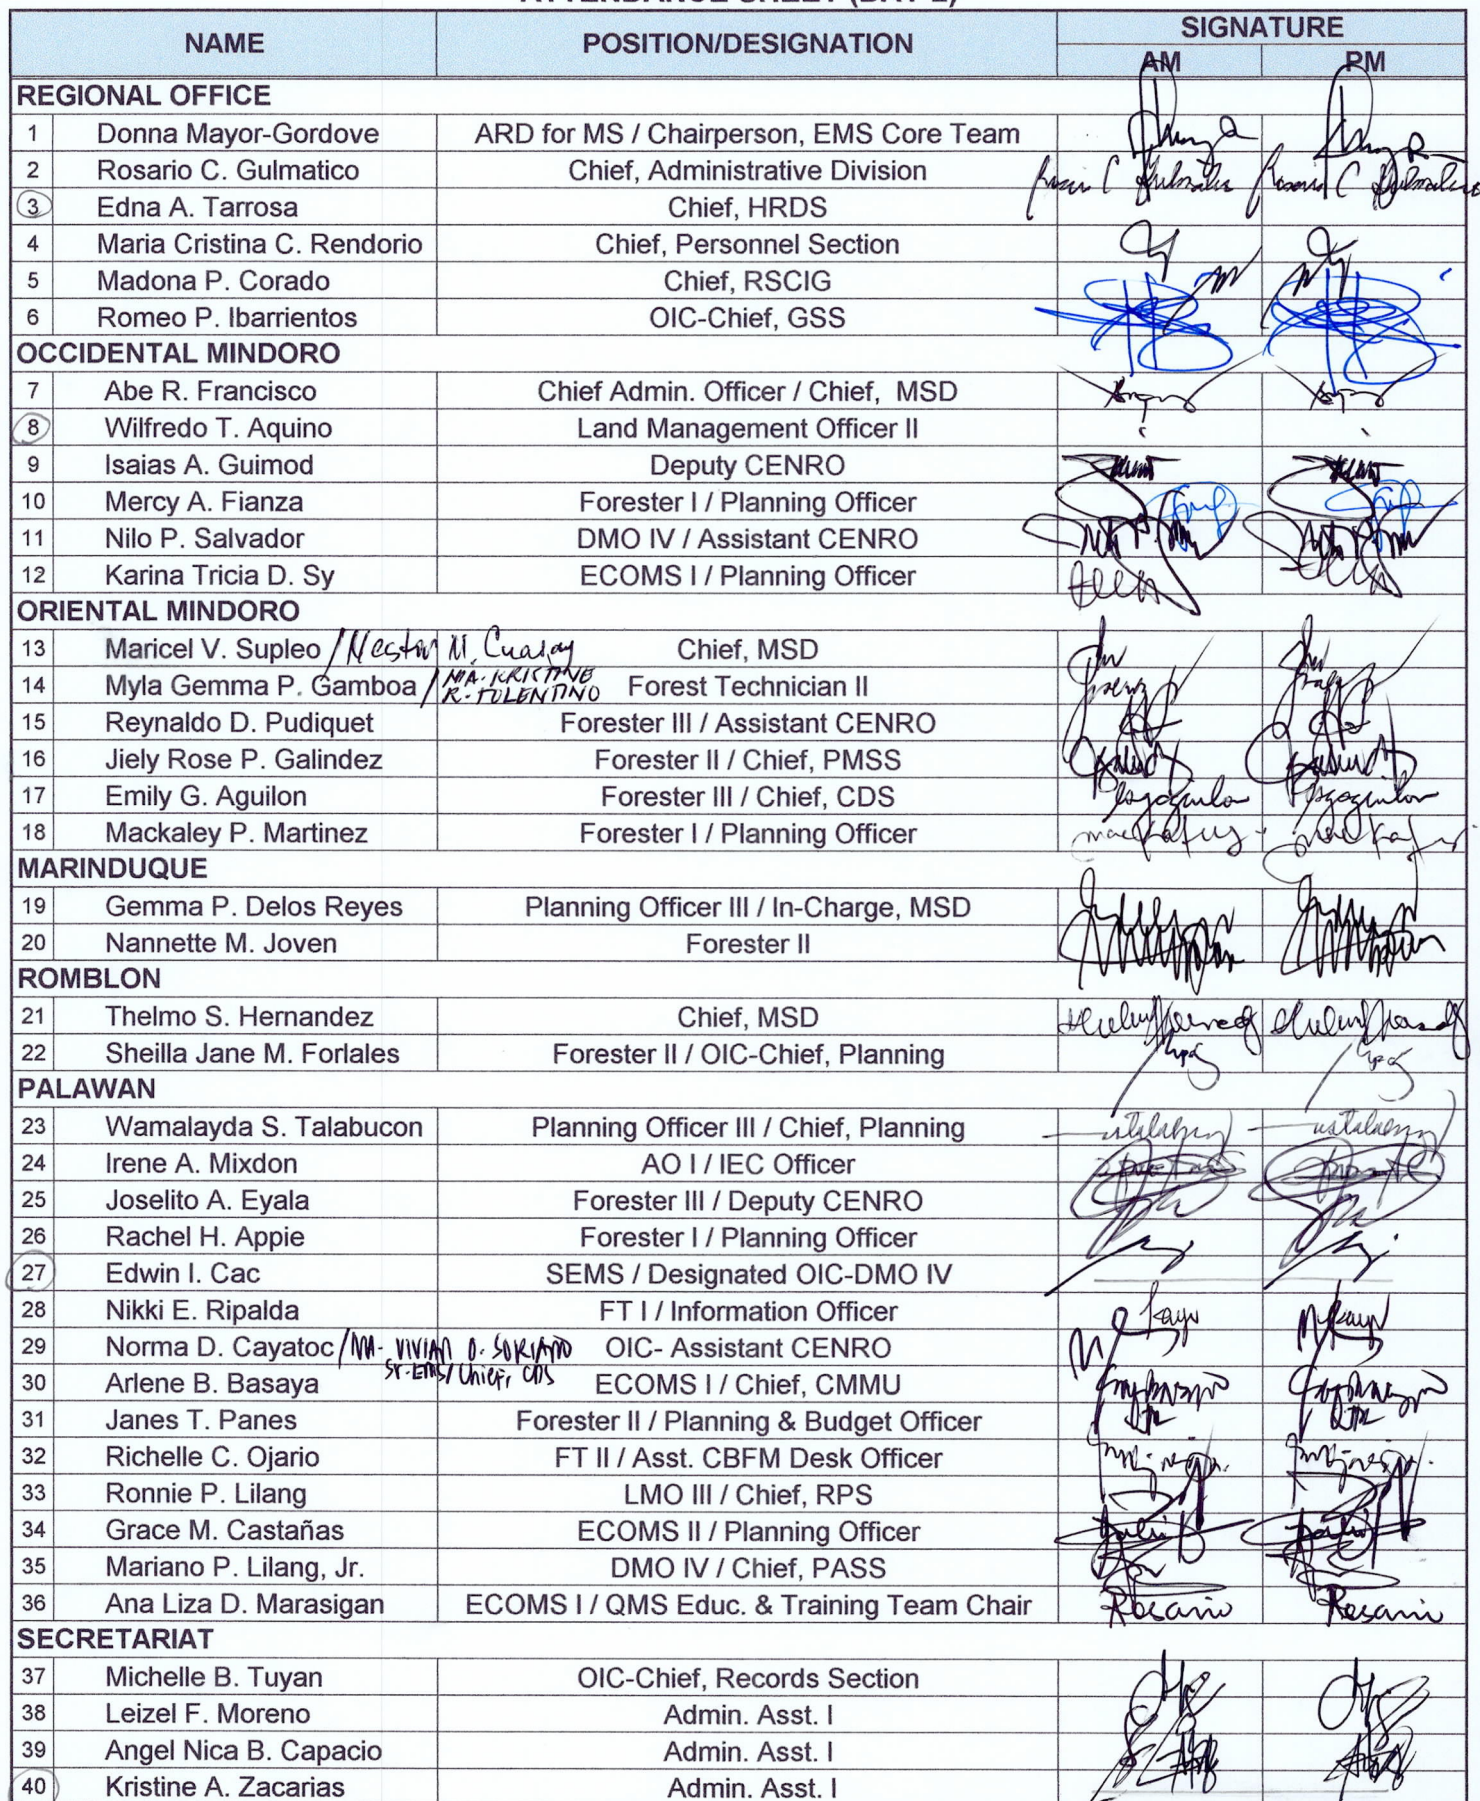 ATTENDANCE SHEET (DAY 2)
NAME POSITION/DESIGNATION SIGNATURE
AM PM
REGIONAL OFFICE
1 Donna Mayor-Gordove ARD for MS / Chairperson, EMS Core Team
2 Rosario C. Gulmatico Chief, Administrative Division
3 Edna A. Tarrosa Chief, HRDS
4 Maria Cristina C. Rendorio Chief, Personnel Section
5 Madona P. Corado Chief, RSCIG
6 Romeo P. Ibarrientos OIC-Chief, GSS
OCCIDENTAL MINDORO
7 Abe R. Francisco Chief Admin. Officer / Chief, MSD
8 Wilfredo T. Aquino Land Management Officer II
9 Isaias A. Guimod Deputy CENRO
10 Mercy A. Fianza Forester I / Planning Officer
11 Nilo P. Salvador DMO IV / Assistant CENRO
12 Karina Tricia D. Sy ECOMS I / Planning Officer
ORIENTAL MINDORO
13 Maricel V. Supleo / Nestor M. Cuasay Chief, MSD
14 Myla Gemma P. Gamboa / MA. KRISTINE R. TOLENTINO Forest Technician II
15 Reynaldo D. Pudiquet Forester III / Assistant CENRO
16 Jiely Rose P. Galindez Forester II / Chief, PMSS
17 Emily G. Aguilon Forester III / Chief, CDS
18 Mackaley P. Martinez Forester I / Planning Officer
MARINDUQUE
19 Gemma P. Delos Reyes Planning Officer III / In-Charge, MSD
20 Nannette M. Joven Forester II
ROMBLON
21 Thelmo S. Hernandez Chief, MSD
22 Sheilla Jane M. Forlales Forester II / OIC-Chief, Planning
PALAWAN
23 Wamalayda S. Talabucon Planning Officer III / Chief, Planning
24 Irene A. Mixdon AO I / IEC Officer
25 Joselito A. Eyala Forester III / Deputy CENRO
26 Rachel H. Appie Forester I / Planning Officer
27 Edwin I. Cac SEMS / Designated OIC-DMO IV
28 Nikki E. Ripalda FT I / Information Officer
29 Norma D. Cayatoc / MA. VIVIAN O. SORIANO OIC- Assistant CENRO
Sr. EMS/ Chief, CDS
30 Arlene B. Basaya ECOMS I / Chief, CMMU
31 Janes T. Panes Forester II / Planning & Budget Officer
32 Richelle C. Ojario FT II / Asst. CBFM Desk Officer
33 Ronnie P. Lilang LMO III / Chief, RPS
34 Grace M. Castañas ECOMS II / Planning Officer
35 Mariano P. Lilang, Jr. DMO IV / Chief, PASS
36 Ana Liza D. Marasigan ECOMS I / QMS Educ. & Training Team Chair
SECRETARIAT
37 Michelle B. Tuyan OIC-Chief, Records Section
38 Leizel F. Moreno Admin. Asst. I
39 Angel Nica B. Capacio Admin. Asst. I
40 Kristine A. Zacarias Admin. Asst. I